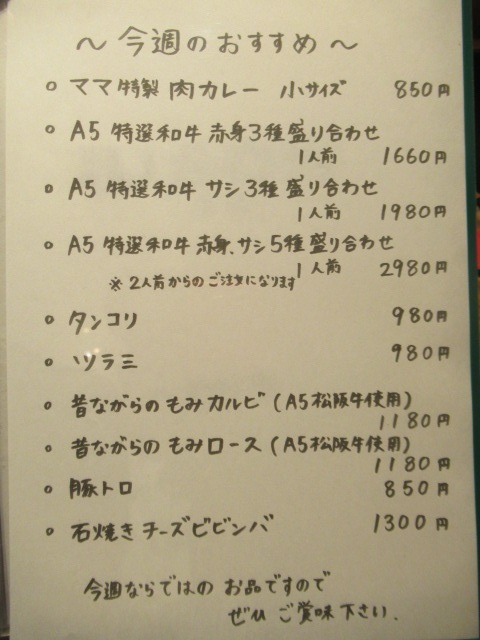 ～今週のおすすめ～
○ ママ特製 肉カレー 小サイズ 850円
○ A5 特選和牛 赤身3種盛り合わせ
1人前 1660円
○ A5 特選和牛 サシ3種盛り合わせ
1人前 1980円
○ A5 特選和牛 赤身、サシ5種盛り合わせ
1人前 2980円
※2人前からのご注文になります
○ タンコリ 980円
○ ツラミ 980円
○ 昔ながらの もみカルビ (A5松阪牛使用)
1180円
○ 昔ながらの もみロース (A5松阪牛使用)
1180円
○ 豚トロ 850円
○ 石焼きチーズビビンバ 1300円
今週ならではの お品ですので
ぜひ ご賞味下さい.